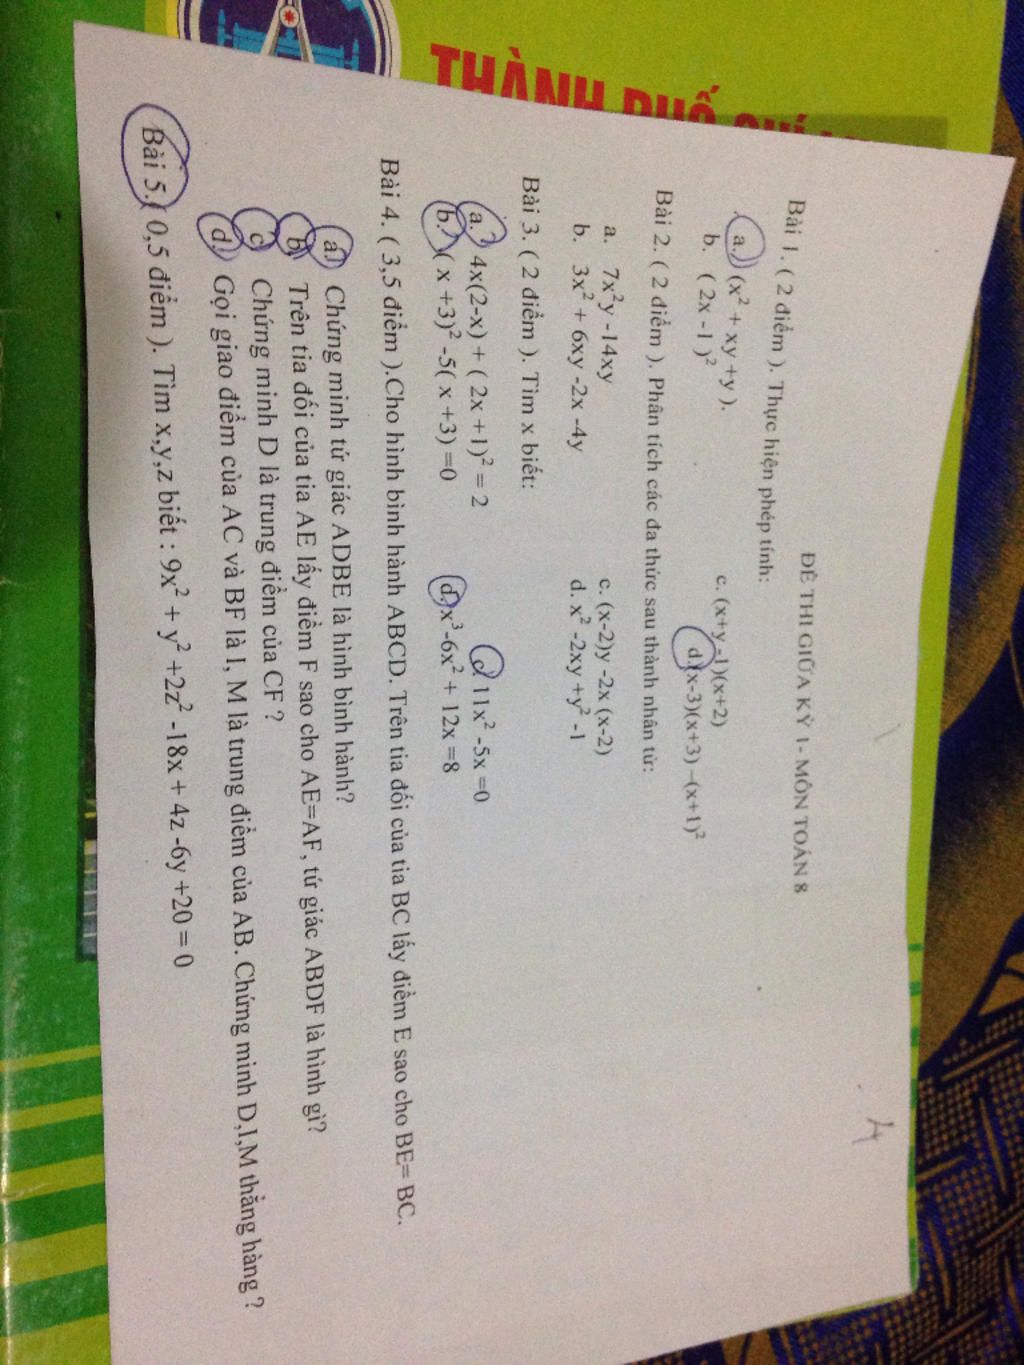 THÀNH PHỐ
4
ĐỀ THI GIỮA KỲ I - MÔN TOÁN 8
Bài 1. ( 2 điểm ). Thực hiện phép tính:
a. (x² + xy +y ).
c. (x+y -1)(x+2)
b. ( 2x -1 )²
d.(x-3)(x+3) –(x+1)²
Bài 2. ( 2 điểm ). Phân tích các đa thức sau thành nhân tử:
a. 7x²y -14xy
c. (x-2)y -2x (x-2)
b. 3x² + 6xy -2x -4y
d. x² -2xy +y² -1
Bài 3. ( 2 điểm ). Tìm x biết:
a. 4x(2-x) + ( 2x +1)² = 2
c 11x² -5x =0
b. ( x +3)² -5( x +3) =0
d. x³ -6x² + 12x =8
Bài 4. ( 3,5 điểm ).Cho hình bình hành ABCD. Trên tia đối của tia BC lấy điểm E sao cho BE= BC.
a. Chứng minh tứ giác ADBE là hình bình hành?
b Trên tia đối của tia AE lấy điểm F sao cho AE=AF, tứ giác ABDF là hình gì?
c Chứng minh D là trung điểm của CF ?
d. Gọi giao điểm của AC và BF là I, M là trung điểm của AB. Chứng minh D,I,M thẳng hàng ?
Bài 5. ( 0,5 điểm ). Tìm x,y,z biết : 9x² + y² +2z² -18x + 4z -6y +20 = 0